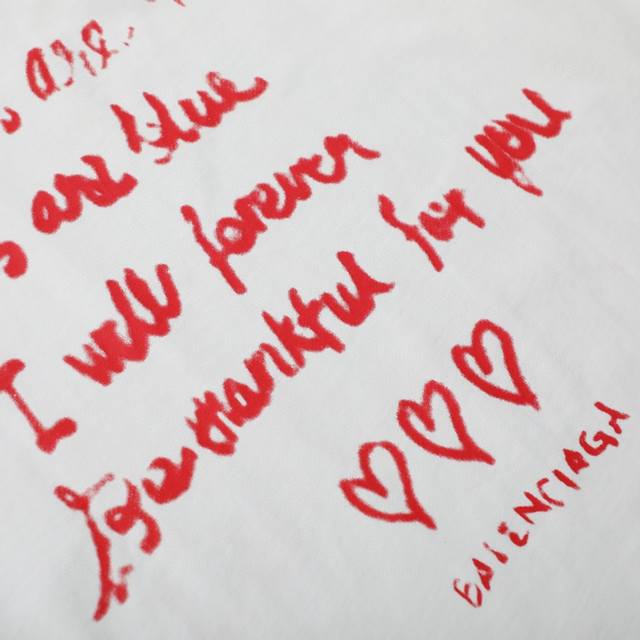 are
s are blue
I will forever
be thankful for you
BALENCIAGA